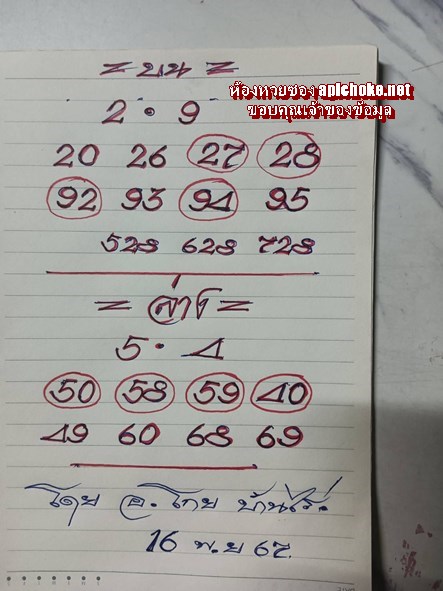 = บน =
ห้องหวยซอง apichoke.net
ขอบคุณเจ้าของข้อมูล
2 • 9
20 26 27 28
92 93 94 95
528 628 728
= ล่าง =
5 • 4
50 58 59 40
49 60 68 69
โดย อ. โกย บ้านไร่.
16 พ.ย 67.